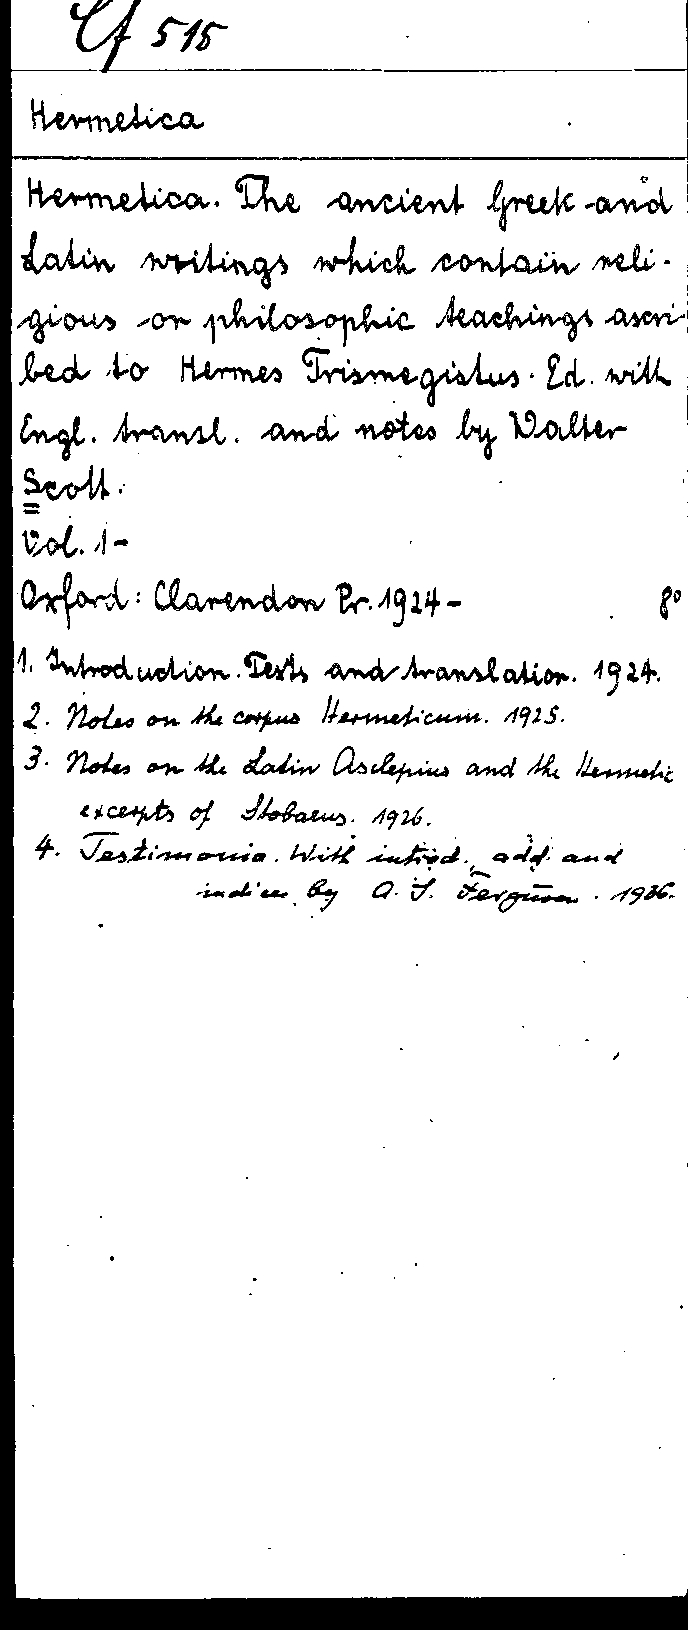 Cf 515
Hermetica
Hermetica. The ancient Greek and
Latin writings which contain reli-
gious or philosophic teachings ascri-
bed to Hermes Trismegistus. Ed. with
Engl. transl. and notes by Walter
Scott.
Vol. 1-
Oxford: Clarendon Pr. 1924- 8°
1. Introduction. Texts and translation. 1924.
2. Notes on the corpus Hermeticum. 1925.
3. Notes on the Latin Asclepius and the Hermetic
excerpts of Stobaeus. 1926.
4. Testimonia. With introd., add. and
indices by A. S. Ferguson. 1936.